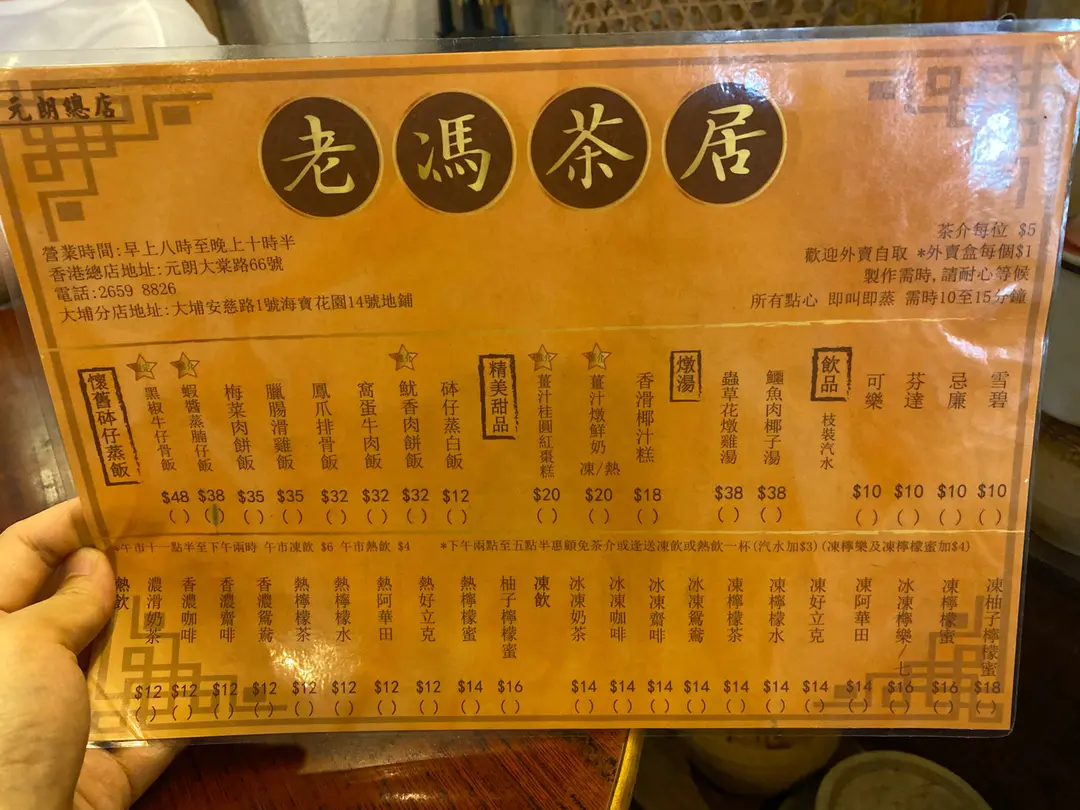 元朗總店
老馮茶居
營業時間:早上八時至晚上十時半
香港總店地址:元朗大棠路66號
電話:2659 8826
大埔分店地址:大埔安慈路1號海寶花園14號地鋪
茶介每位 $5
歡迎外賣自取 *外賣盒每個$1
製作需時,請耐心等候
所有點心 即叫即蒸 需時10至15分鐘
懷舊砵仔蒸飯
黑椒牛仔骨飯 $48 ( )
蝦醬蒸腩仔飯 $38 ( )
梅菜肉餅飯 $35 ( )
臘腸滑雞飯 $35 ( )
鳳爪排骨飯 $32 ( )
窩蛋牛肉飯 $32 ( )
魷香肉餅飯 $32 ( )
砵仔蒸白飯 $12 ( )
精美甜品
薑汁桂圓紅棗糕 $20 ( )
薑汁燉鮮奶 凍/熱 $20 ( )
香滑椰汁糕 $18 ( )
燉湯
蟲草花燉雞湯 $38 ( )
鱷魚肉椰子湯 $38 ( )
飲品
枝裝汽水
可樂 $10 ( )
芬達 $10 ( )
忌廉 $10 ( )
雪碧 $10 ( )
*午市十一點半至下午兩時 午市凍飲 $6 午市熱飲 $4
*下午兩點至五點半惠顧免茶介或逢送凍飲或熱飲一杯(汽水加$3)(凍檸樂及凍檸檬蜜加$4)
熱飲
濃滑奶茶 $12 ( )
香濃咖啡 $12 ( )
香濃齋啡 $12 ( )
香濃鴛鴦 $12 ( )
熱檸檬茶 $12 ( )
熱檸檬水 $12 ( )
熱阿華田 $12 ( )
熱好立克 $12 ( )
熱檸檬蜜 $14 ( )
柚子檸檬蜜 $16 ( )
凍飲
冰凍奶茶 $14 ( )
冰凍咖啡 $14 ( )
冰凍齋啡 $14 ( )
冰凍鴛鴦 $14 ( )
凍檸檬茶 $14 ( )
凍檸檬水 $14 ( )
凍好立克 $14 ( )
凍阿華田 $14 ( )
冰凍檸樂/七 $16 ( )
凍檸檬蜜 $16 ( )
凍柚子檸檬蜜 $18 ( )